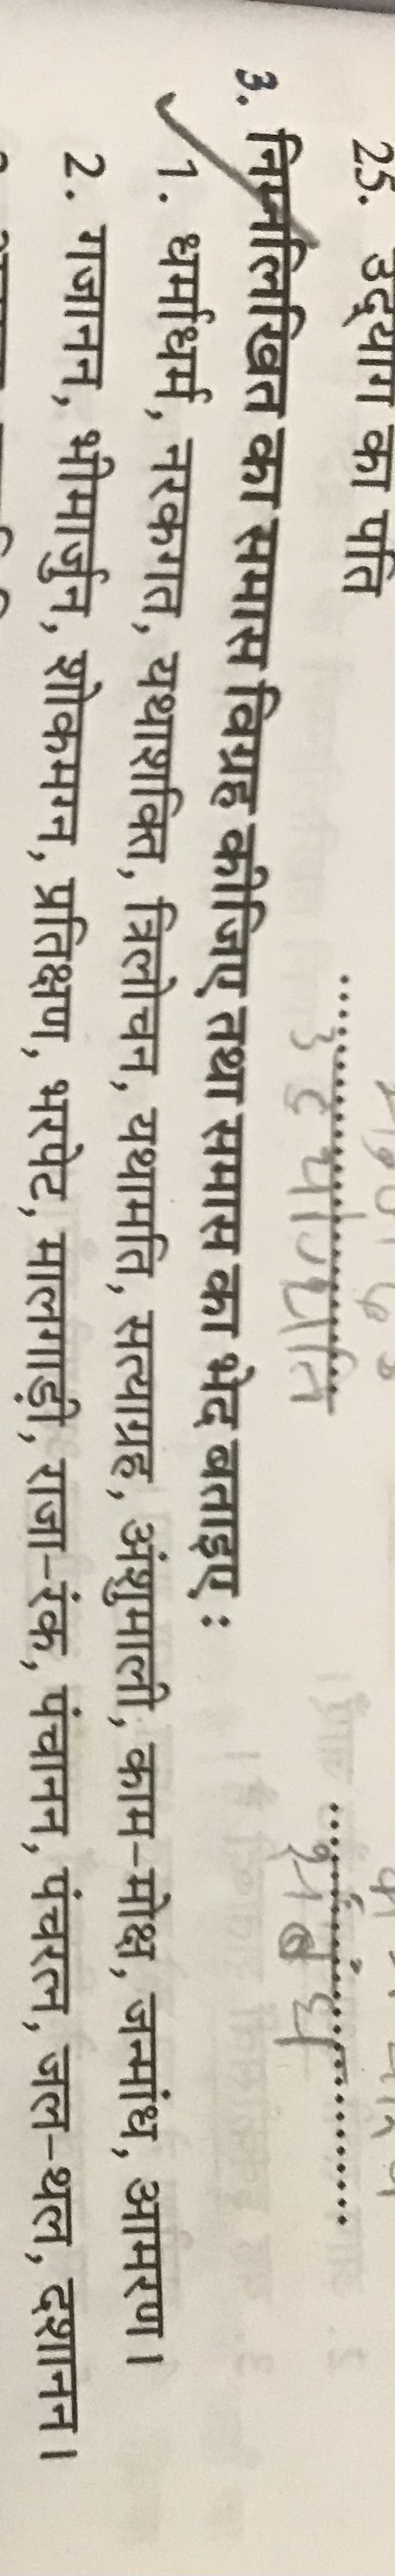 25. उद्योग का पति
3. निम्नलिखित का समास विग्रह कीजिए तथा समास का भेद बताइए :
1. धर्माधर्म, नरकगत, यथाशक्ति, त्रिलोचन, यथामति, सत्याग्रह, अंशुमाली, काम-मोक्ष, जन्मांध, आमरण।
2. गजानन, भीमार्जुन, शोकमग्न, प्रतिक्षण, भरपेट, मालगाड़ी, राजा-रंक, पंचानन, पंचरत्न, जल-थल, दशानन।